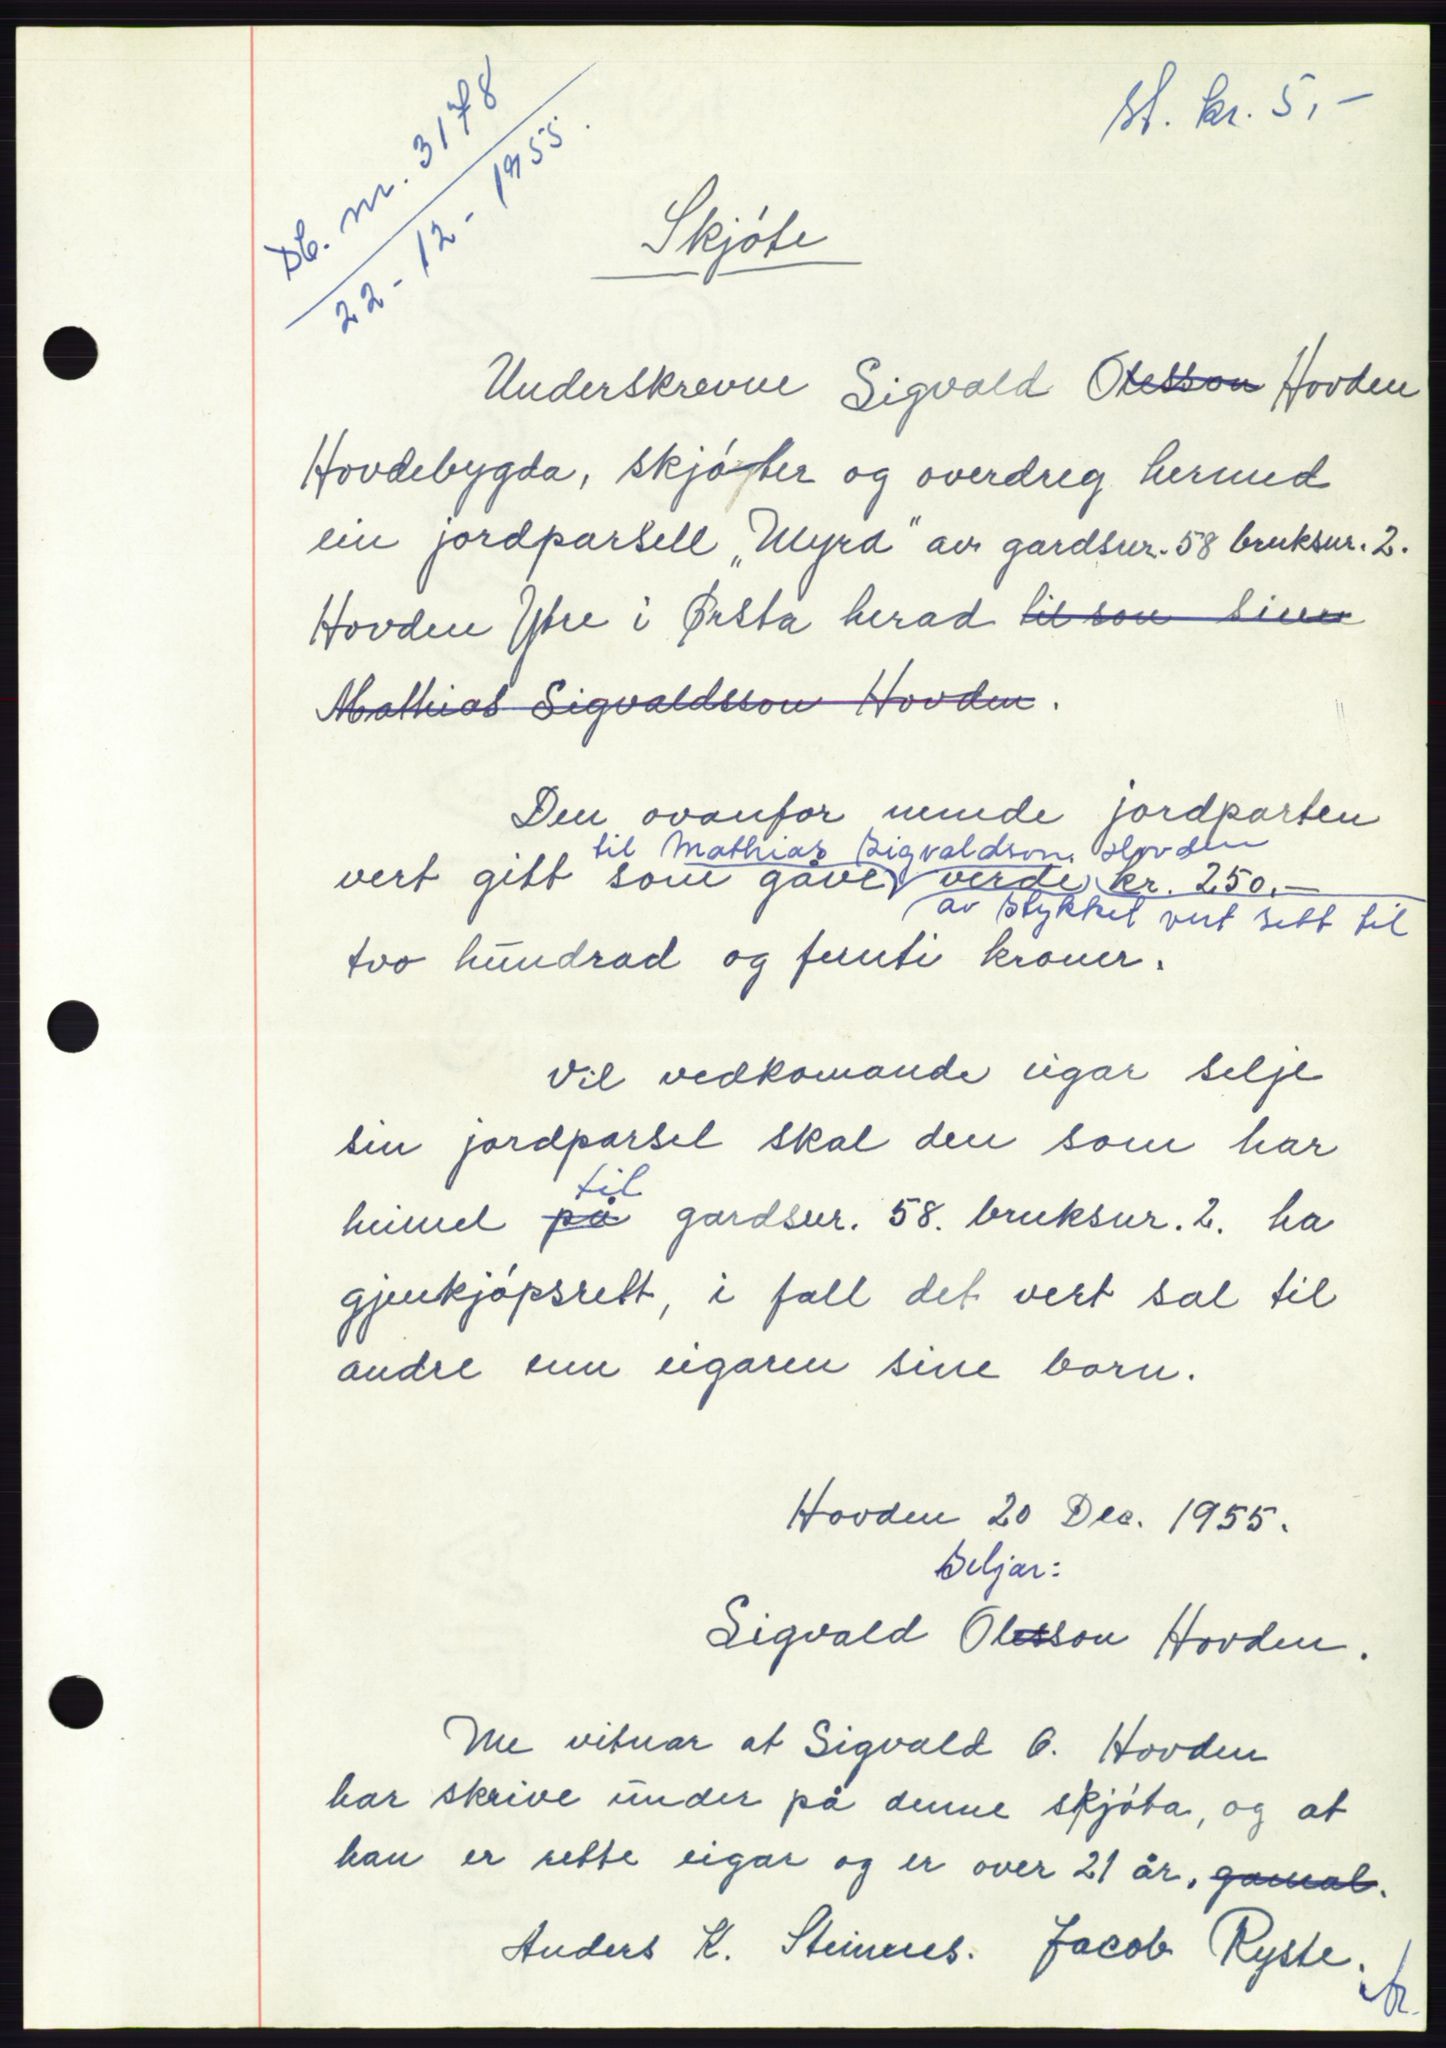 Db. nr. 3178
22-12-1955.
st. kr. 5,-
Skjóte
Underskrevne Sigvald Olesson Hovden
Hovdebygda, skjóter og overdreg hermed
ein jordparsell „Myra" av gardsnr. 58 bruksnr. 2.
Hovden Ytre i Ørsta herad til son sin
Mathias Sigvaldsson Hovden.
Den ovanfor nemde jordparten
til Mathias Sigvaldson Hovden
vert gitt som gåve verde kr. 250,-
av stykket vert sett til
tvo hundrad og femti kroner.
Vil vedkomande eigar selje
sin jordparsel skal den som har
til
heimel på gardsnr. 58. bruksnr. 2. ha
gjenkjópsrett, i fall det vert sal til
andre enn eigaren sine born.
Hovden 20 Dec. 1955.
Seljar:
Sigvald Olesson Hovden.
Me vitnar at Sigvald O. Hovden
har skrive under på denne skjóta, og at
han er rette eigar og er over 21 år. gamal.
Anders K. Steinnes. Jacob Ryste.